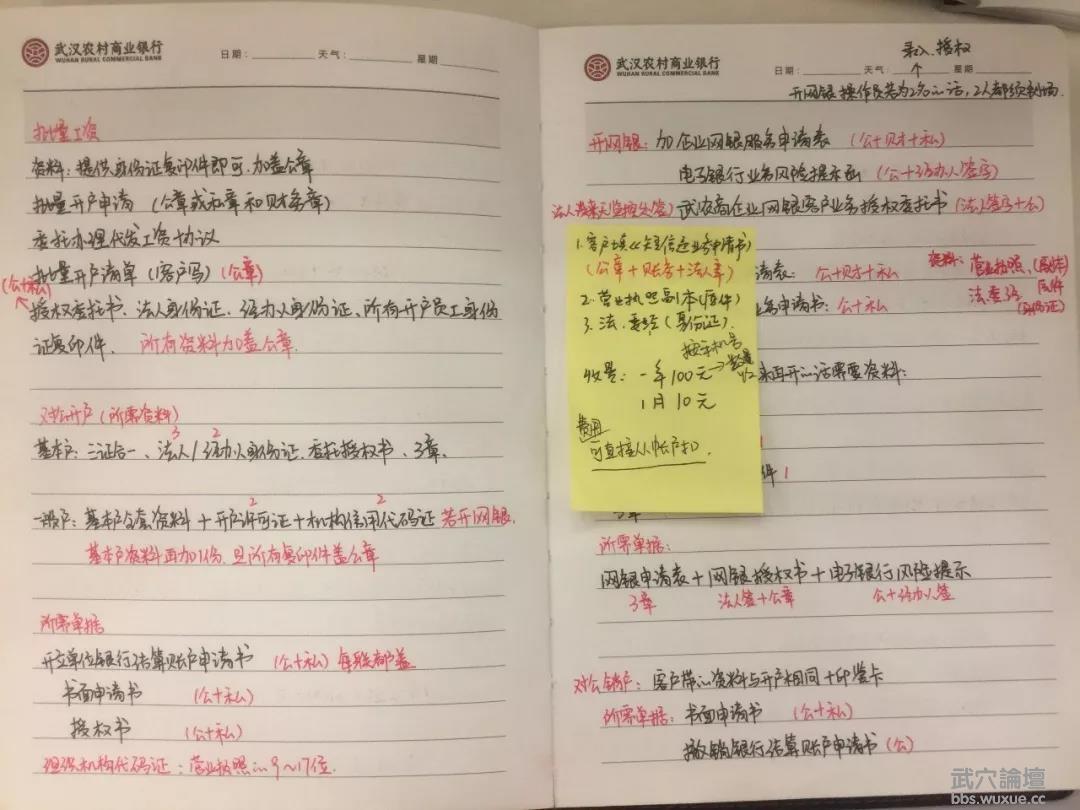 武汉农村商业银行
WUHAN RURAL COMMERCIAL BANK
日期： 天气： 星期
批量工资
资料：提供身份证复印件即可.加盖公章
批量开户申请 (公章或私章和财务章)
委托办理代发工资协议
批量开户清单(客户写) (公章)
(公+私)
授权委托书、法人身份证、经办人身份证、所有开户员工身份
证复印件. 所有资料加盖公章.
对公开户(所需资料)
3 2
基本户：三证合一、法人/经办人身份证.委托授权书、3章.
2 2
一般户：基本户全套资料+开户许可证+机构信用代码证 若开网银.
基本户资料再加1份.且所有复印件盖公章
所需单据
开立单位银行结算账户申请书 (公+私) 每联都盖
书面申请书 (公+私)
授权书 (公+私)
组织机构代码证：营业执照的9~17位.
武汉农村商业银行
WUHAN RURAL COMMERCIAL BANK
录入、授权
日期： 天气： 星期
开网银操作员若为2名的话,2人都须到场.
开网银：加企业网银服务申请表 (公+财+私)
电子银行业务风险提示函 (公+经办人签字)
武农商企业网银客户业务授权委托书 (法人签字+公)
1.客户填《短信企业申请书》
(公章+账务+法人章)
2.营业执照副本(原件)
3.法.委经(身份证).
按手机号
收景：一年100元→
1月10元
费用
可直接从帐户扣.
请表： 公+财+私
务申请书：公+私
资料：营业执照、(原件)
法.委经 原件
(身份证)
来再开的话需要资料：
件 1
3章
所需单据：
网银申请表+网银授权书+电子银行风险提示
3章 法人签+公章 公+经办人签
对公销户：客户带的资料与开户相同+印鉴卡
所需单据：书面申请书 (公+私)
撤销银行结算账户申请书(公)
武穴論壇
bbs.wuxue.cc